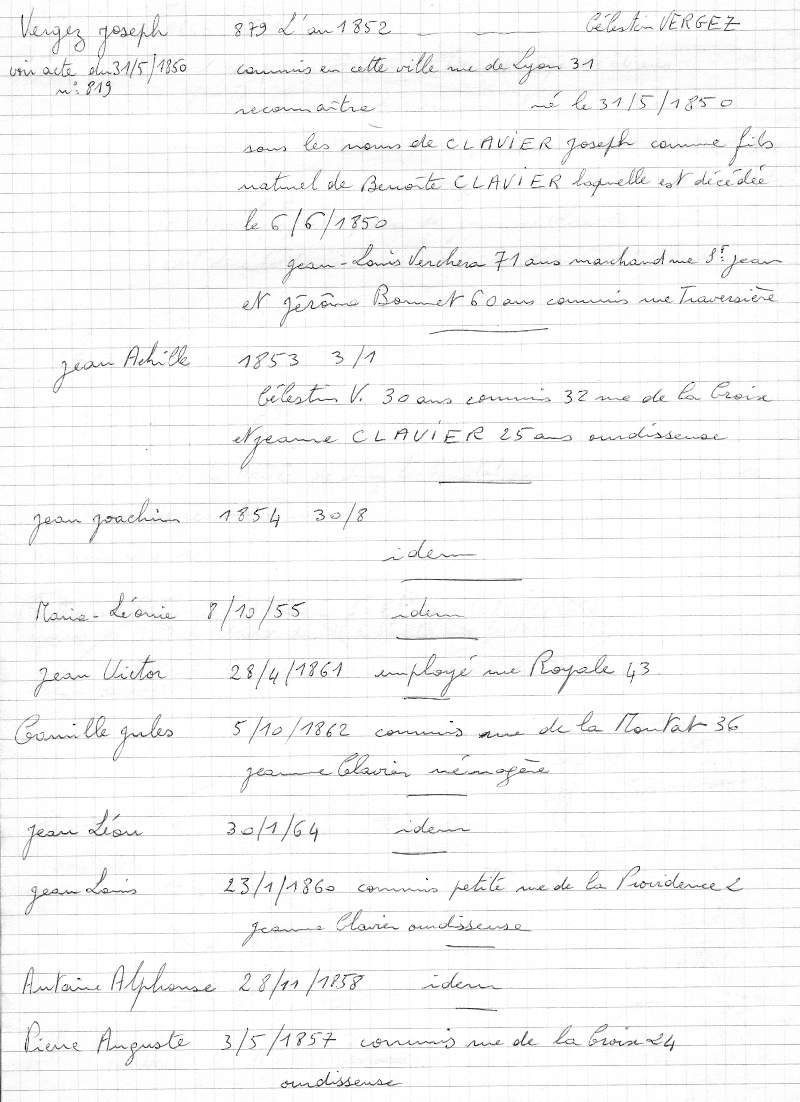 Vergez Joseph 879 L'an 1852 _ _ Célestin VERGEZ
voir acte du 31/5/1850 commis en cette ville rue de Lyon 31
n° 819
reconnaître né le 31/5/1850
sous les noms de CLAVIER Joseph comme fils
naturel de Benoîte CLAVIER laquelle est décédée
le 6/6/1850
Jean-Louis Verchera 71 ans marchand rue St Jean
et Jérôme Bonnet 60 ans commis rue Traversière
Jean Achille 1853 3/1
Célestin V. 30 ans commis 32 rue de la Croix
et Jeanne CLAVIER 25 ans ourdisseuse
Jean Joachim 1854 30/8
idem
Marie-Léonie 8/10/55 idem
Jean Victor 28/4/1861 employé rue Royale 43
Camille Jules 5/10/1862 commis rue de la Montat 36
Jeanne Clavier ménagère
Jean Léon 30/1/64 idem
Jean Louis 23/1/1860 commis petite rue de la Providence 2
Jeanne Clavier ourdisseuse
Antoine Alphonse 28/11/1858 idem
Pierre Auguste 3/5/1857 commis rue de la Croix 24
ourdisseuse